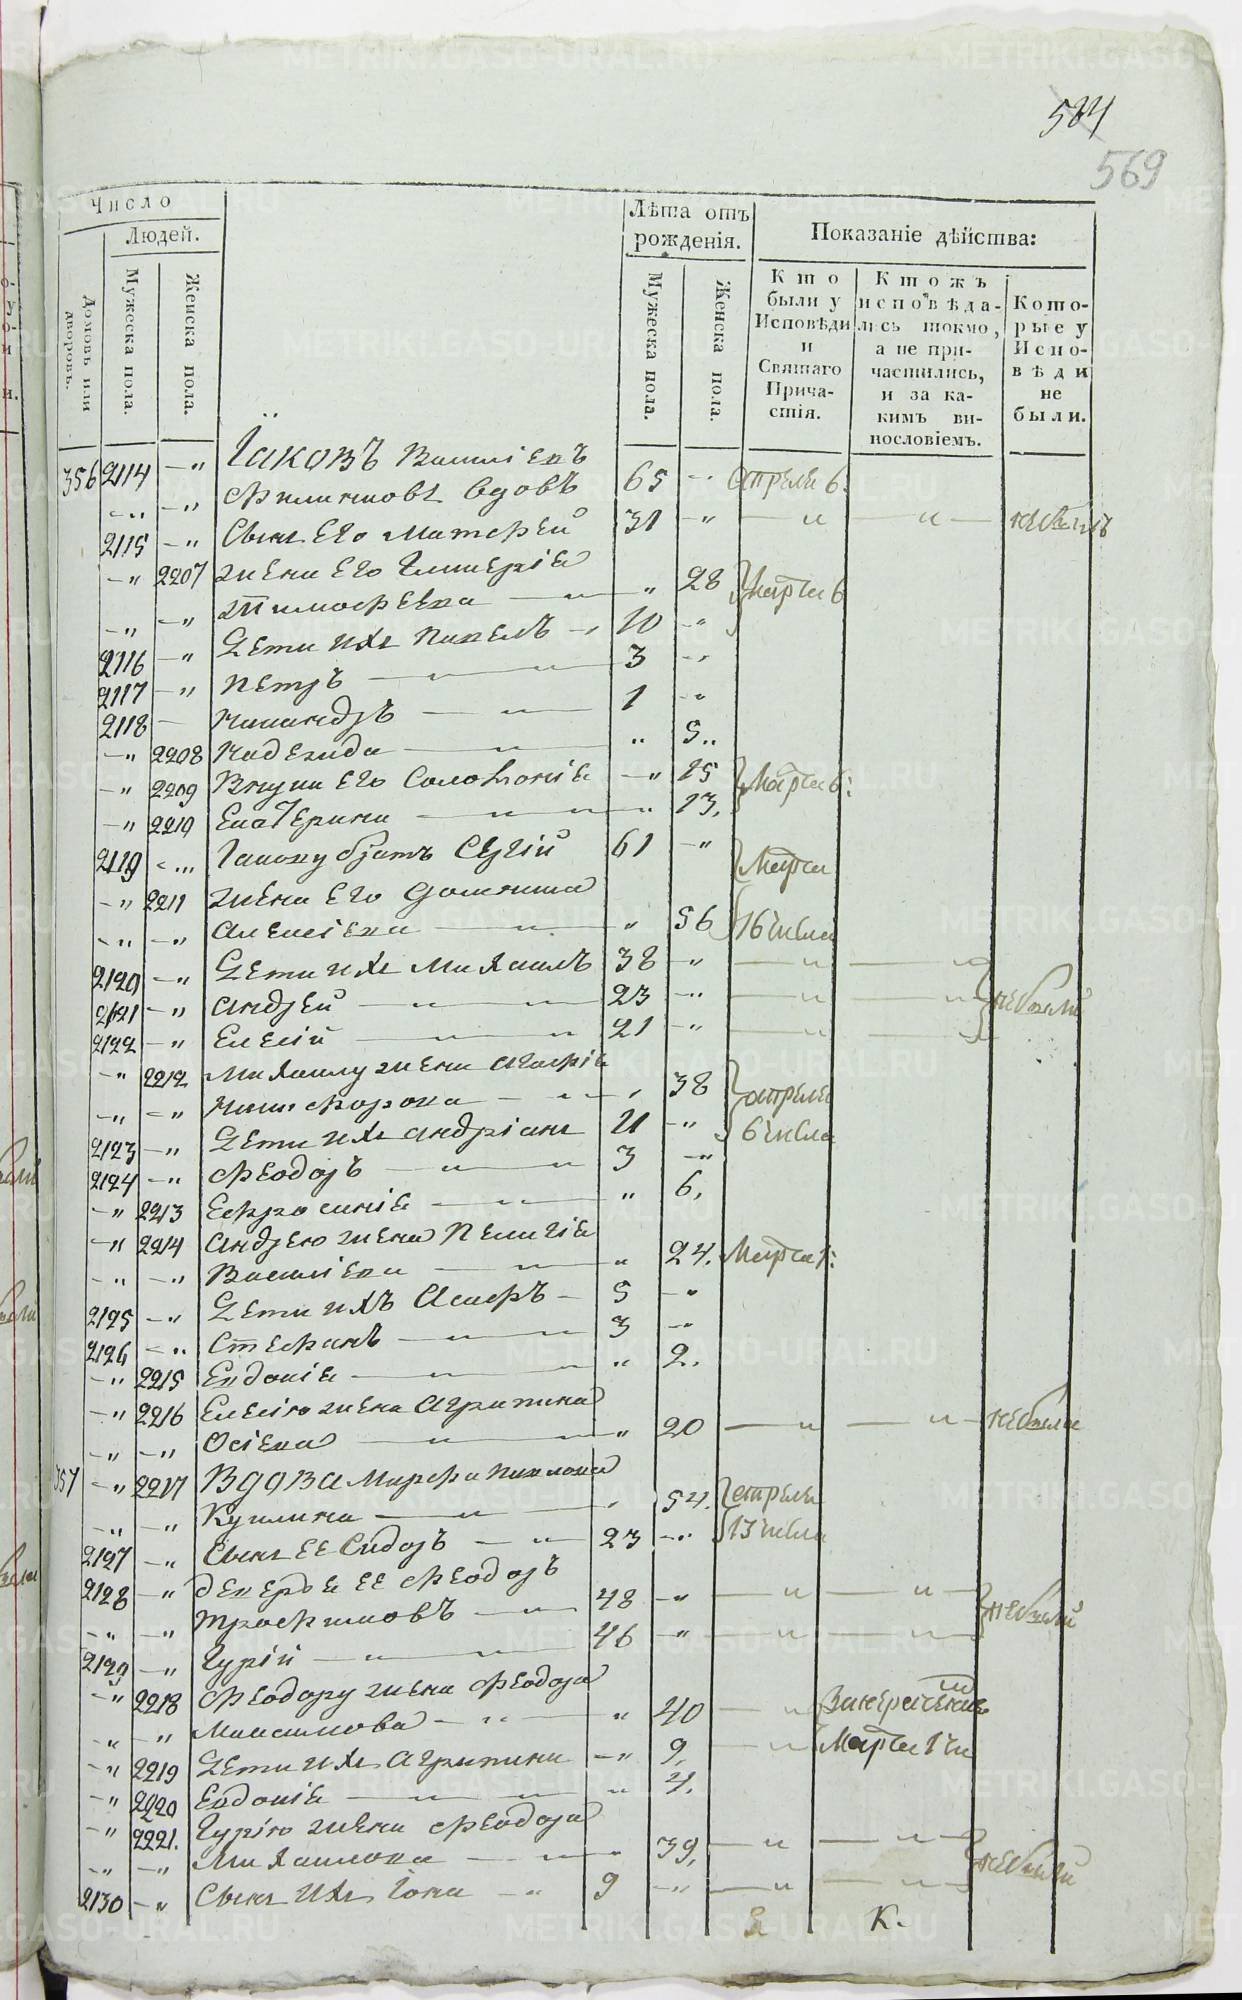 584
569
Число
Людей.
Домовъ или дворовъ.
Мужеска пола.
Женска пола.
Лѣта отъ рожденія.
Мужеска пола.
Женска пола.
Показаніе дѣйства:
Кто были у Исповѣди и Святаго Причастія.
Ктожъ исповѣдались токмо, а не причастились, и за какимъ винословіемъ.
Которые у Исповѣди не были.
356 2114 —„ Іаковъ Василіевъ
—„ —„ Филиповъ вдовъ 65 —„ Апреля 6:
2115 —„ Сынъ Его Матфей 31 —„ — „ — „ — небылъ
—„ 2207 жена Его Гликерія
—„ —„ Тимофѣева — „ — „ 28 Марта 6
2116 —„ Дети ихъ Павелъ —„ 10 —„
2117 —„ Петръ — „ — 3 —„
2118 — Никандръ — „ — 1 —„
—„ 2208 Надежда — „ — „ 5„
—„ 2209 Внуки Его Соломонія —„ 15 Марта 6:
—„ 2210 Екатерина — „ — „ — „ 13,
2119 —„ Іакову братъ Сергій 61 —„ Марта
—„ 2211 жена Его Домника
—„ —„ Алексіева — „ — „ 56 16 числа
2120 —„ Дети ихъ Михаилъ 38 —„ — „ —
2121 —„ Андрей — „ — „ 23 —„ — „ — „ небыли
2122 —„ Елесій — „ — „ 21 —„ — „ — „
—„ 2212 Михаилу жена Агафія
—„ —„ Никифорова — „ — , 38 апреля
2123 —„ Дети ихъ Андріанъ 11 —„ 6 числа
2124 —„ Феодоръ — „ — „ 3 —„
—„ 2213 Ефросинія — „ — „ 6,
—„ 2214 Андрею жена Пелагія
—„ —„ Василіева — „ — „ 24. Марта 1:
2125 —„ Дети ихъ Асафъ — 5 —„
2126 —„ Стефанъ — „ — „ 3 —„
—„ 2215 Евдокія — „ — „ 2.
—„ 2216 Елесію жена Агрипина
—„ —„ Осіева — „ — „ 20 — „ — „ — небыла
357 —„ 2217 Вдова Марфа Павлова
—„ —„ Куклина — „ — , 54. апреля
2127 —„ Сынъ ЕЕ Сидоръ — „ — 23 —„ 13 числа
2128 —„ деверья ЕЕ Феодоръ
—„ —„ Трофимовъ — „ — 48 —„ — „ — „ — небыли
2129 —„ Гурій — „ — „ — 46 —„ — „ — „ —
—„ 2218 Феодору жена Феодора
„ —„ Максимова — „ — „ 40 — „
—„ 2219 Дети ихъ Агрипина —„ 9, — „ Марта 1 чи
—„ 2220 Евдокія — „ — „ 4.
—„ 2221. Гурію жена Феодора
—„ —„ Михаилова — „ — „ 39, — „ — „ — небыли
2130 —„ Сынъ ихъ Іона — „ 9 —„ — „ — „ —
К.